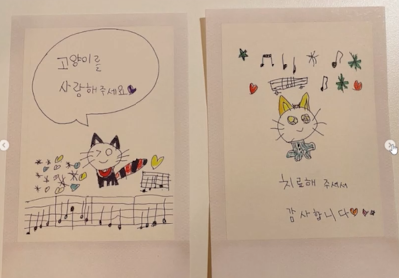 고양이를
사랑해주세요
치료해 주셔서
감사합니다